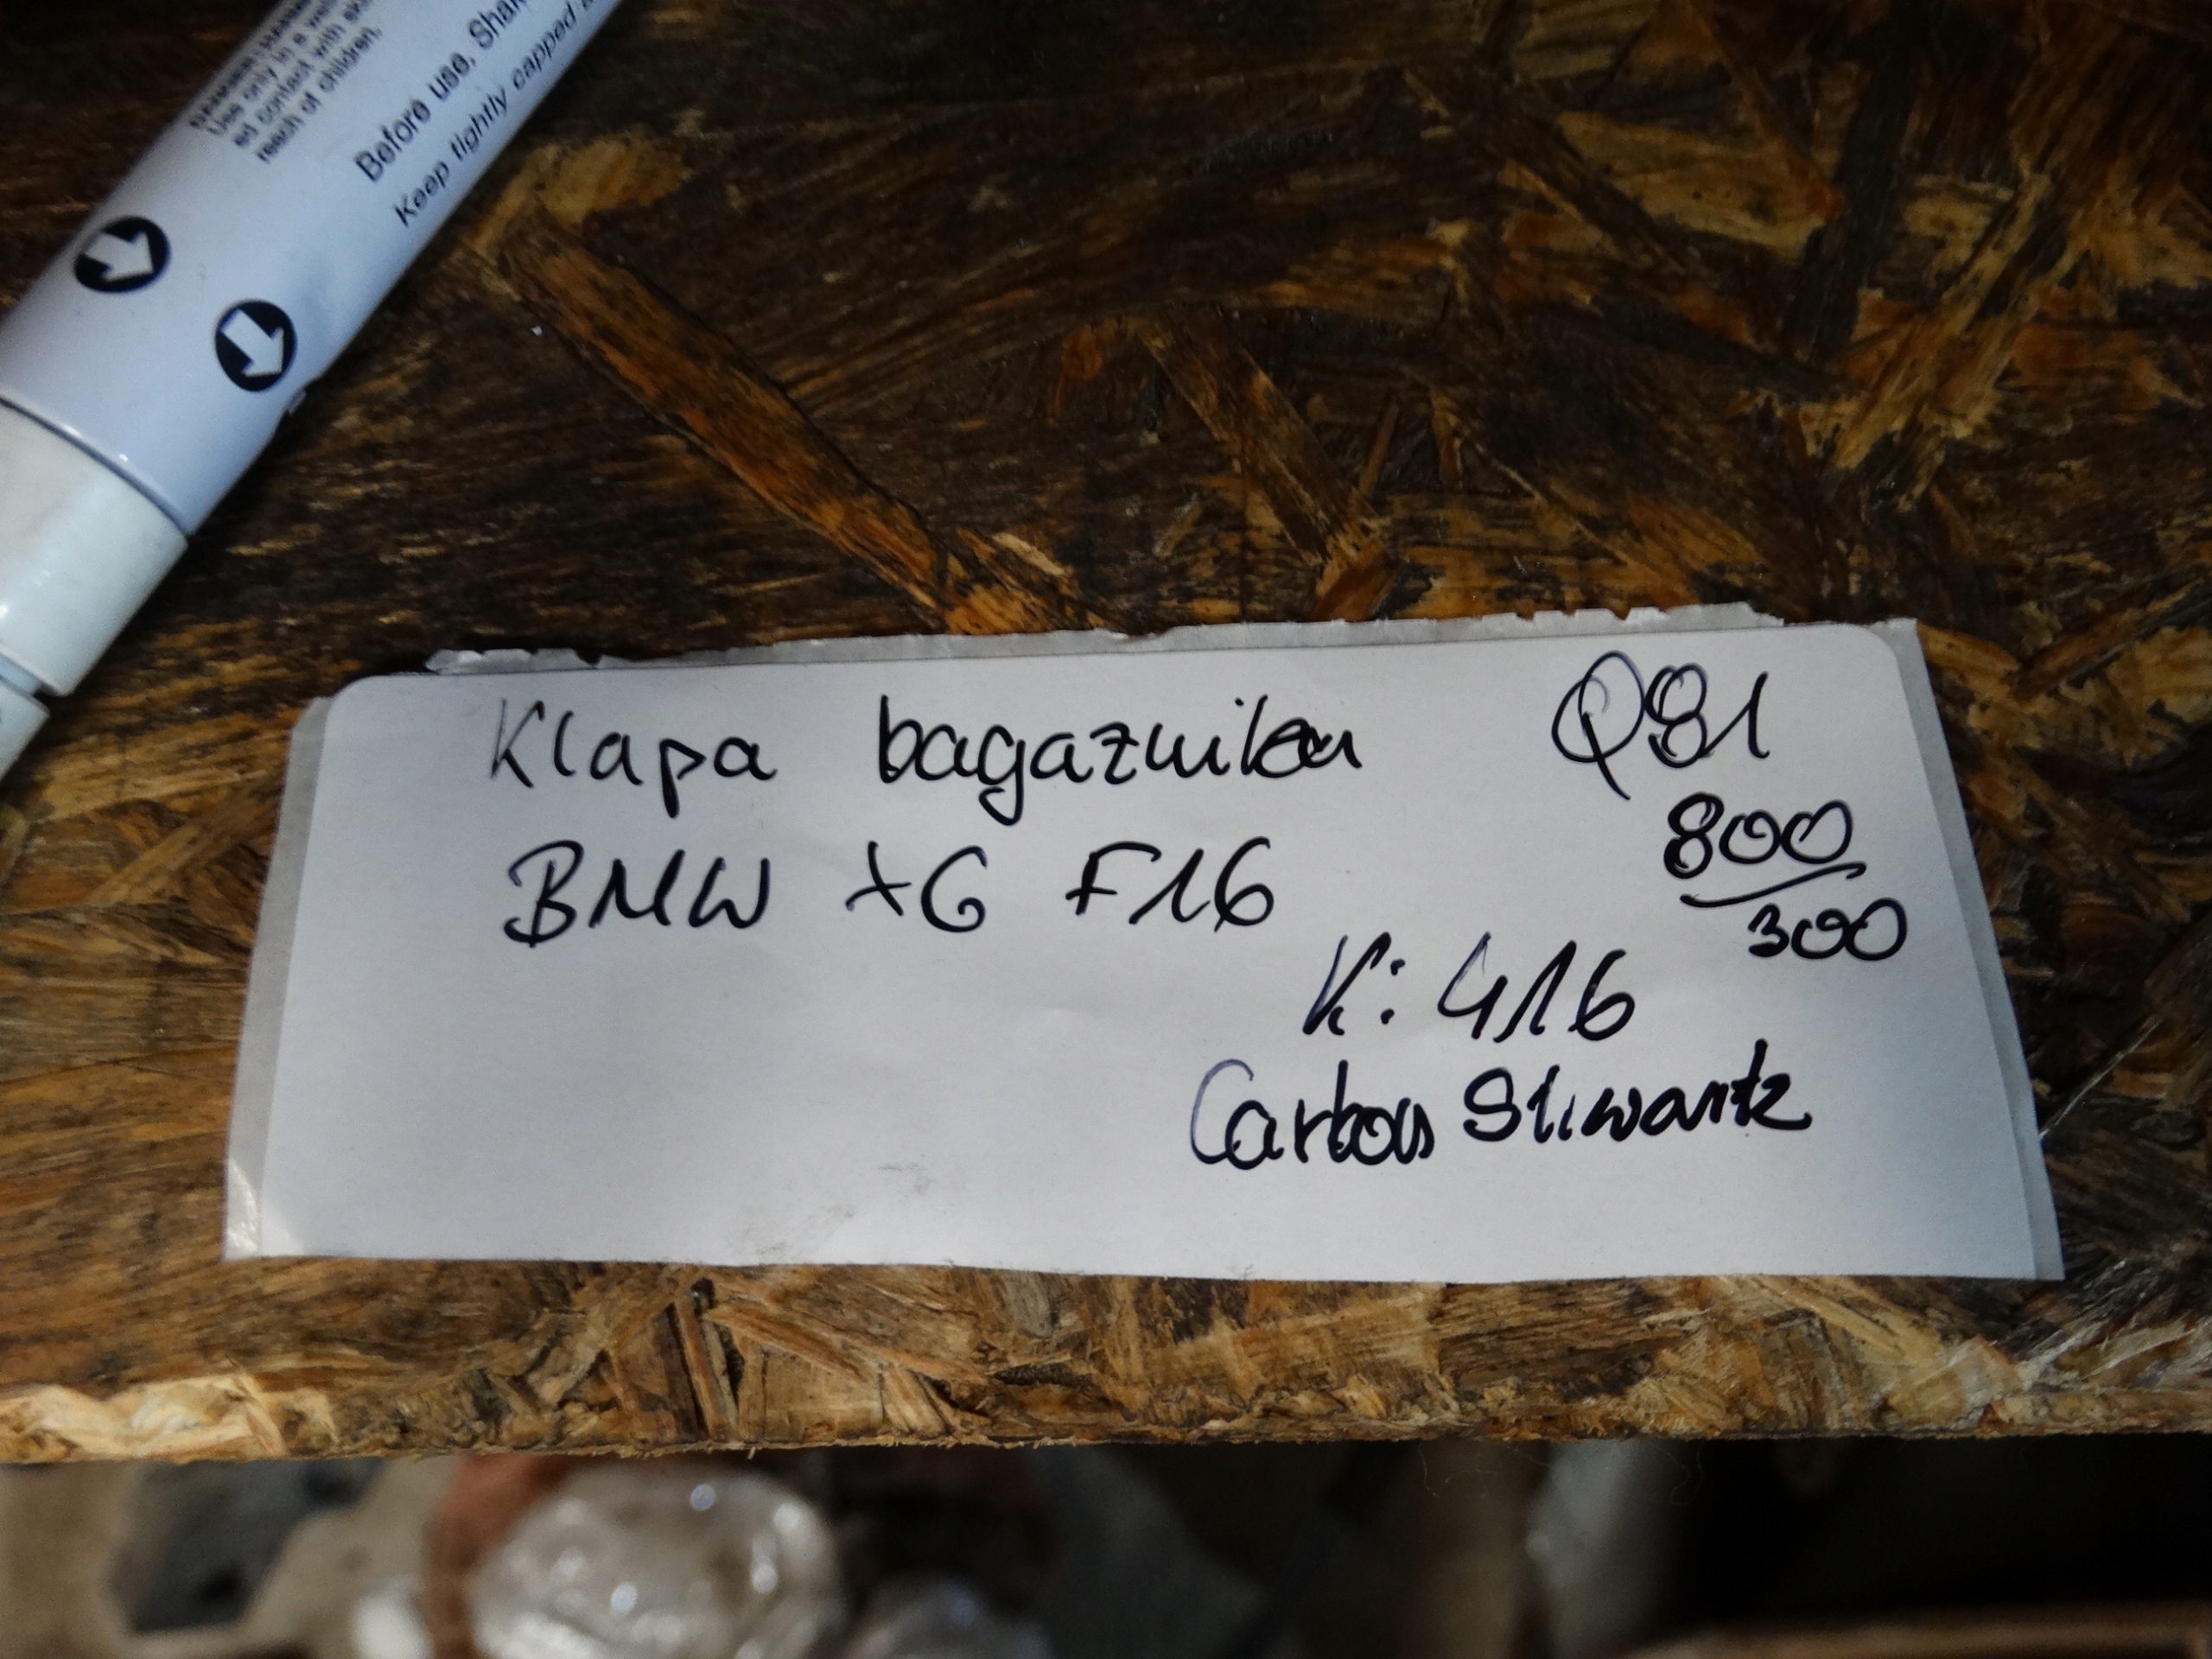 Use only in a we
ed contact with ski
reach of children.
Before use, Shak
Keep tightly capped a
Klapa bagaznika Q81
BMW X6 F16 800
300
K: 416
Carbon Shwartz